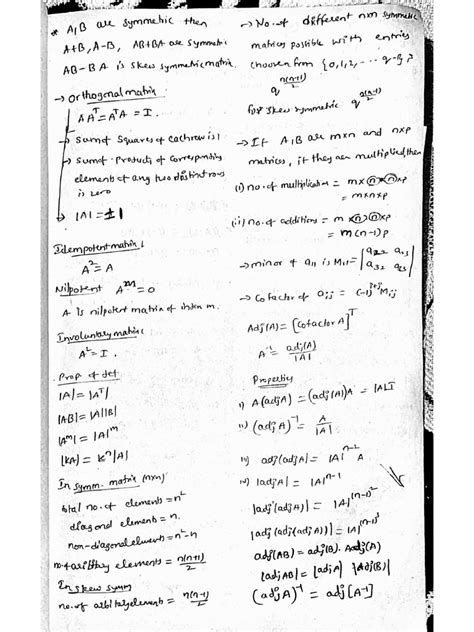 * A,B are symmetric then
A+B, A-B, AB+BA are symmetric
AB-BA is skew symmetric matrix.
→ Orthogonal matrix
AAᵀ=AᵀA = I.
→ Sum of Squares of each row is 1
→ Sum of Products of corresponding
elements of any two distinct rows
is zero
→ |A| = ±1
Idempotent matrix
A²=A
Nilpotent Aᵐ=0
A is nilpotent matrix of index m.
Involuntary matrix
A²=I.
Prop of det
|A|=|Aᵀ|
|AB|=|A||B|
|Aᵐ|=|A|ᵐ
|KA| = Kⁿ|A|
In symm. matrix (n×n)
total no. of elements = n²
diagonal elements = n.
non-diagonal elements = n²-n
no. of arbitrary elements = n(n+1)/2
In skew symm
no. of arbital elements = n(n-1)/2
→ No. of different n×n symmetric
matrices possible with entries
choosen from {0,1,2,... q-1} is
q^(n(n+1)/2)
for skew symmetric q^(n(n-1)/2)
→ If A,B are m×n and n×p
matrices, if they are multiplied, then
(i) no. of multiplications = m×n×n×p
= m×n×p
(ii) no. of additions = m×n×n×p
= m(n-1)p
→ minor of a₁₁ is M₁₁ = |a₂₂ a₂₃
a₃₂ a₃₃|
→ Cofactor of aᵢⱼ = (-1)ⁱ⁺ʲMᵢⱼ
Adj(A) = [Cofactor A]ᵀ
A⁻¹ = adj(A)/|A|
Properties
i) A(adjA) = (adjA)A = |A|I
ii) (adjA)⁻¹ = A/|A|
adj(adjA) = |A|ⁿ⁻² A
|adjA| = |A|ⁿ⁻¹
|adj(adjA)| = |A|^(n-1)²
|adj(adj(adjA))| = |A|^(n-1)³
adj(AB) = adj(B). Adj(A)
|adjAB| = |adjA| |Adj(B)|
(adjA)⁻¹ = adj[A⁻¹]